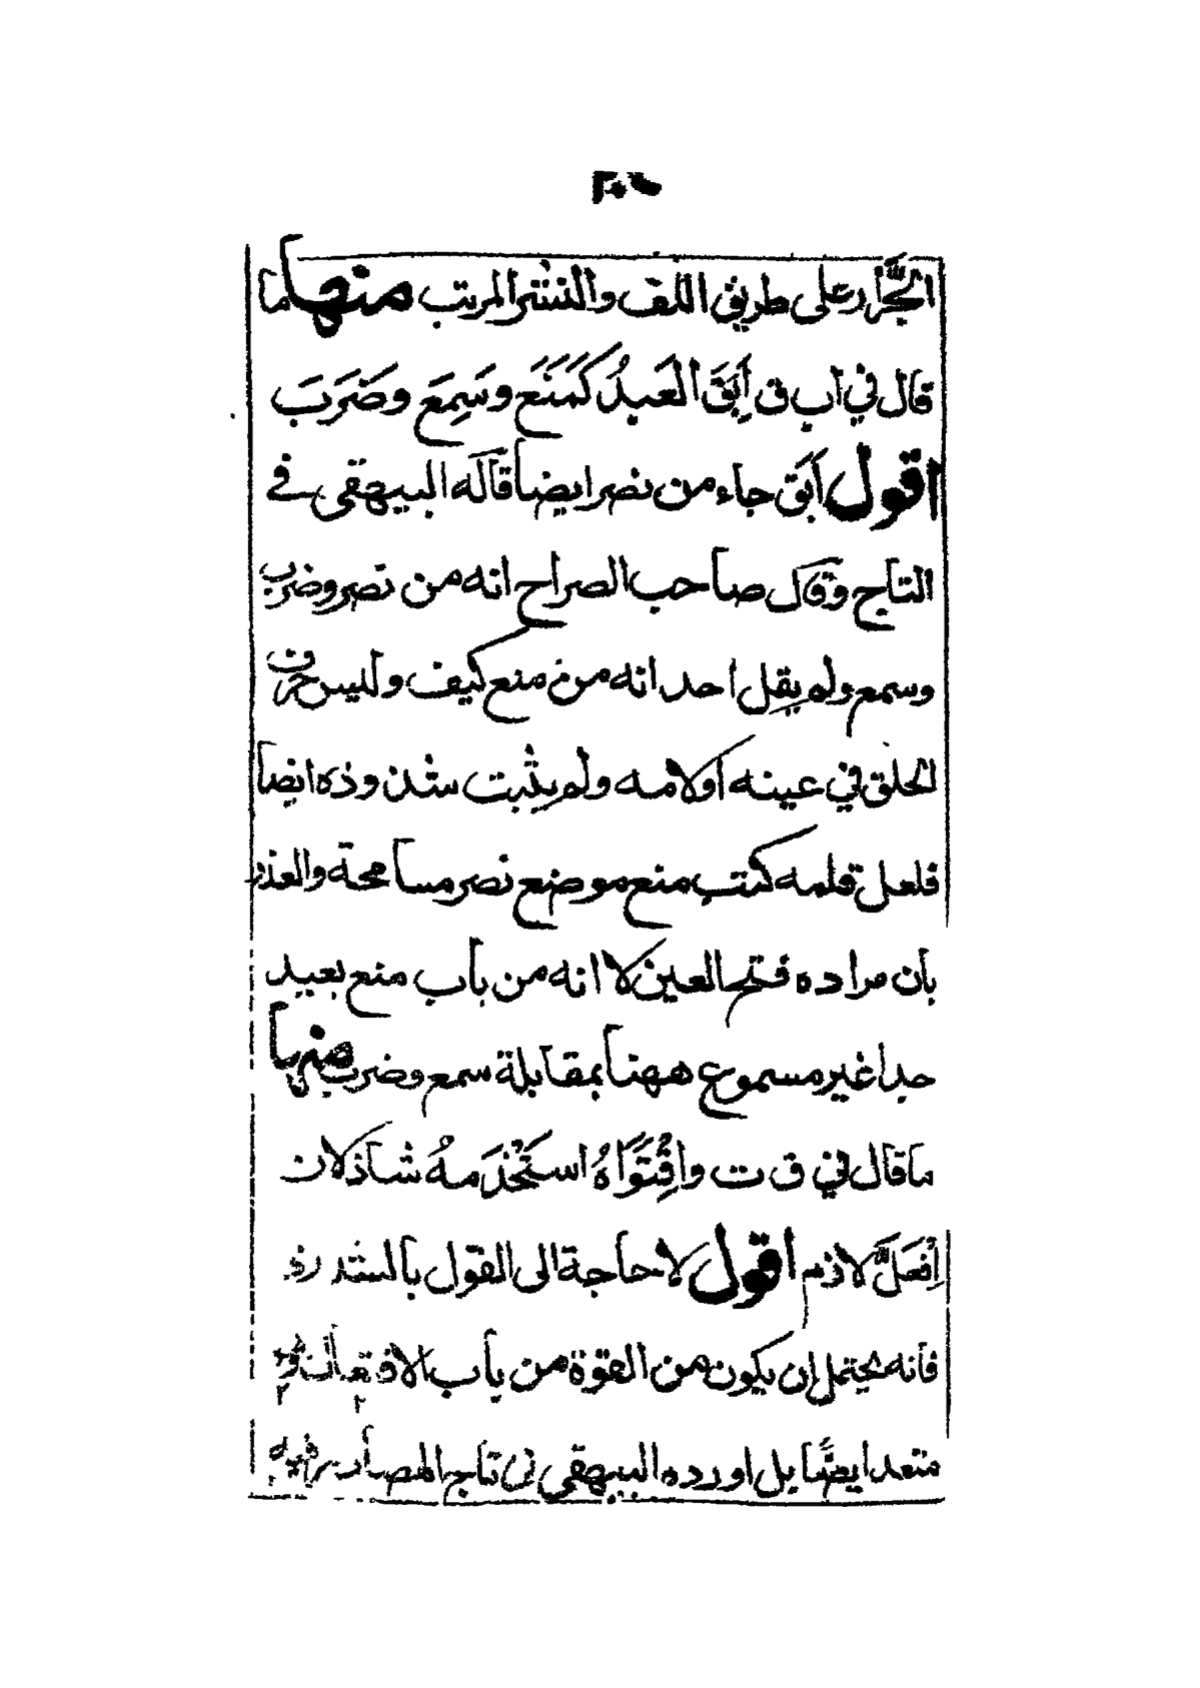 الجَرَّار على طريق اللف والنشر المرتب منها ما
قال في اب ق اَبَقَ العَبدُ كَمَنَعَ وسَمِعَ وضَرَبَ
اقول اَبَق جاء من نصر ايضا قاله البيهقي في
التاج وقال صاحب الصراح انه من نصر وضرب
وسمع ولم يقل احد انه من منع كيف وليس حرف
الحلق في عينه اولامه ولم يثبت شذوذه ايضا
فلعل قلمه كتب منع موضع نصر مسامحة والعذر
بان مراده فتح العين لا انه من باب منع بعيد
جدا غير مسموع ههنا بمقابلة سمع وضرب منها
ما قال في ق ت و اقْتَوَاهُ استَخْدَمهُ شاذ لان
اِفعَلَّ لازم اقول لا حاجة الى القول بالشذوذ
فانه يحتمل ان يكون من القوة من باب الافتعال
متعد ايضًا بل اورده البيهقي في تاج المصادر